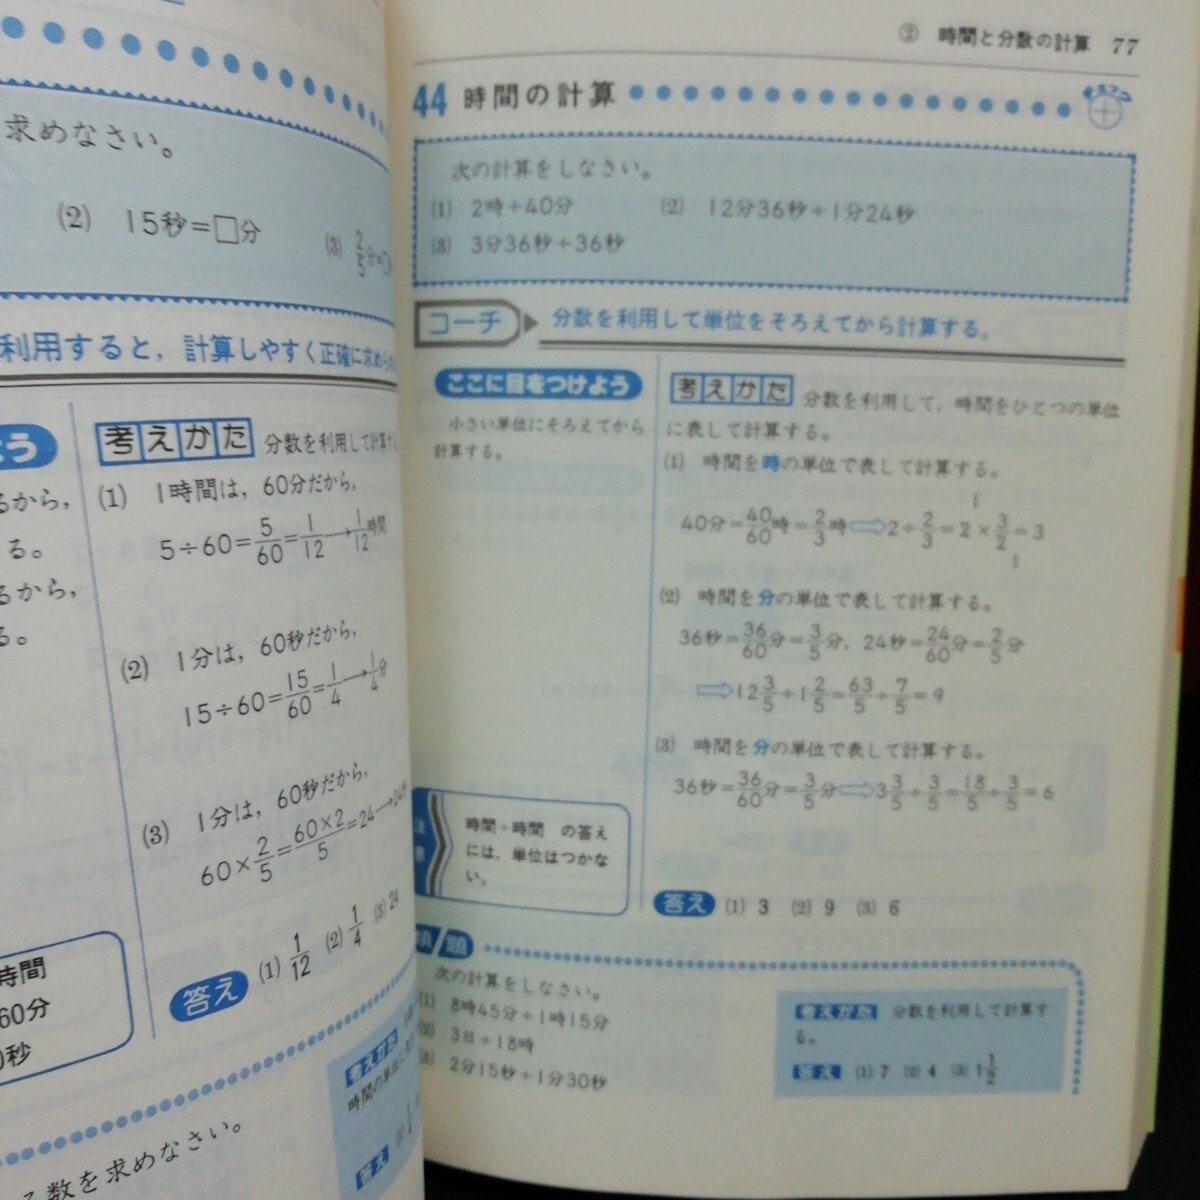 求めなさい。
(2) 15秒=□分
(3) 2/5分=□
利用すると,計算しやすく正確に求め
よう
考えかた 分数を利用して計算す
るから,
(1) 1時間は,60分だから,
る。
5÷60=5/60=1/12→1/12時間
るから,
る。
(2) 1分は,60秒だから,
15÷60=15/60=1/4→1/4分
(3) 1分は,60秒だから,
60×2/5=60×2/5=24→24
答え (1) 1/12 (2) 1/4 (3) 24
時間
60分
秒
考えかた
時間の単位に
答え
数を求めなさい。
② 時間と分数の計算 77
44 時間の計算
次の計算をしなさい。
(1) 2時÷40分 (2) 12分36秒÷1分24秒
(3) 3分36秒÷36秒
コーチ 分数を利用して単位をそろえてから計算する。
ここに目をつけよう
小さい単位にそろえてから
計算する。
考えかた 分数を利用して,時間をひとつの単位
に表して計算する。
(1) 時間を時の単位で表して計算する。
40分=40/60時=2/3時⇨2÷2/3=2×3/2=3
1
1
(2) 時間を分の単位で表して計算する。
36秒=36/60分=3/5分,24秒=24/60分=2/5分
⇨12 3/5÷1 2/5=63/5÷7/5=9
(3) 時間を分の単位で表して計算する。
36秒=36/60分=3/5分⇨3 3/5÷3/5=18/5÷3/5=6
注意
時間÷時間 の答え
には,単位はつかな
い。
答え (1) 3 (2) 9 (3) 6
類題
次の計算をしなさい。
(1) 8時45分÷1時15分
(2) 3日÷18時
(3) 2分15秒÷1分30秒
考えかた 分数を利用して計算す
る。
答え (1) 7 (2) 4 (3) 1 1/2